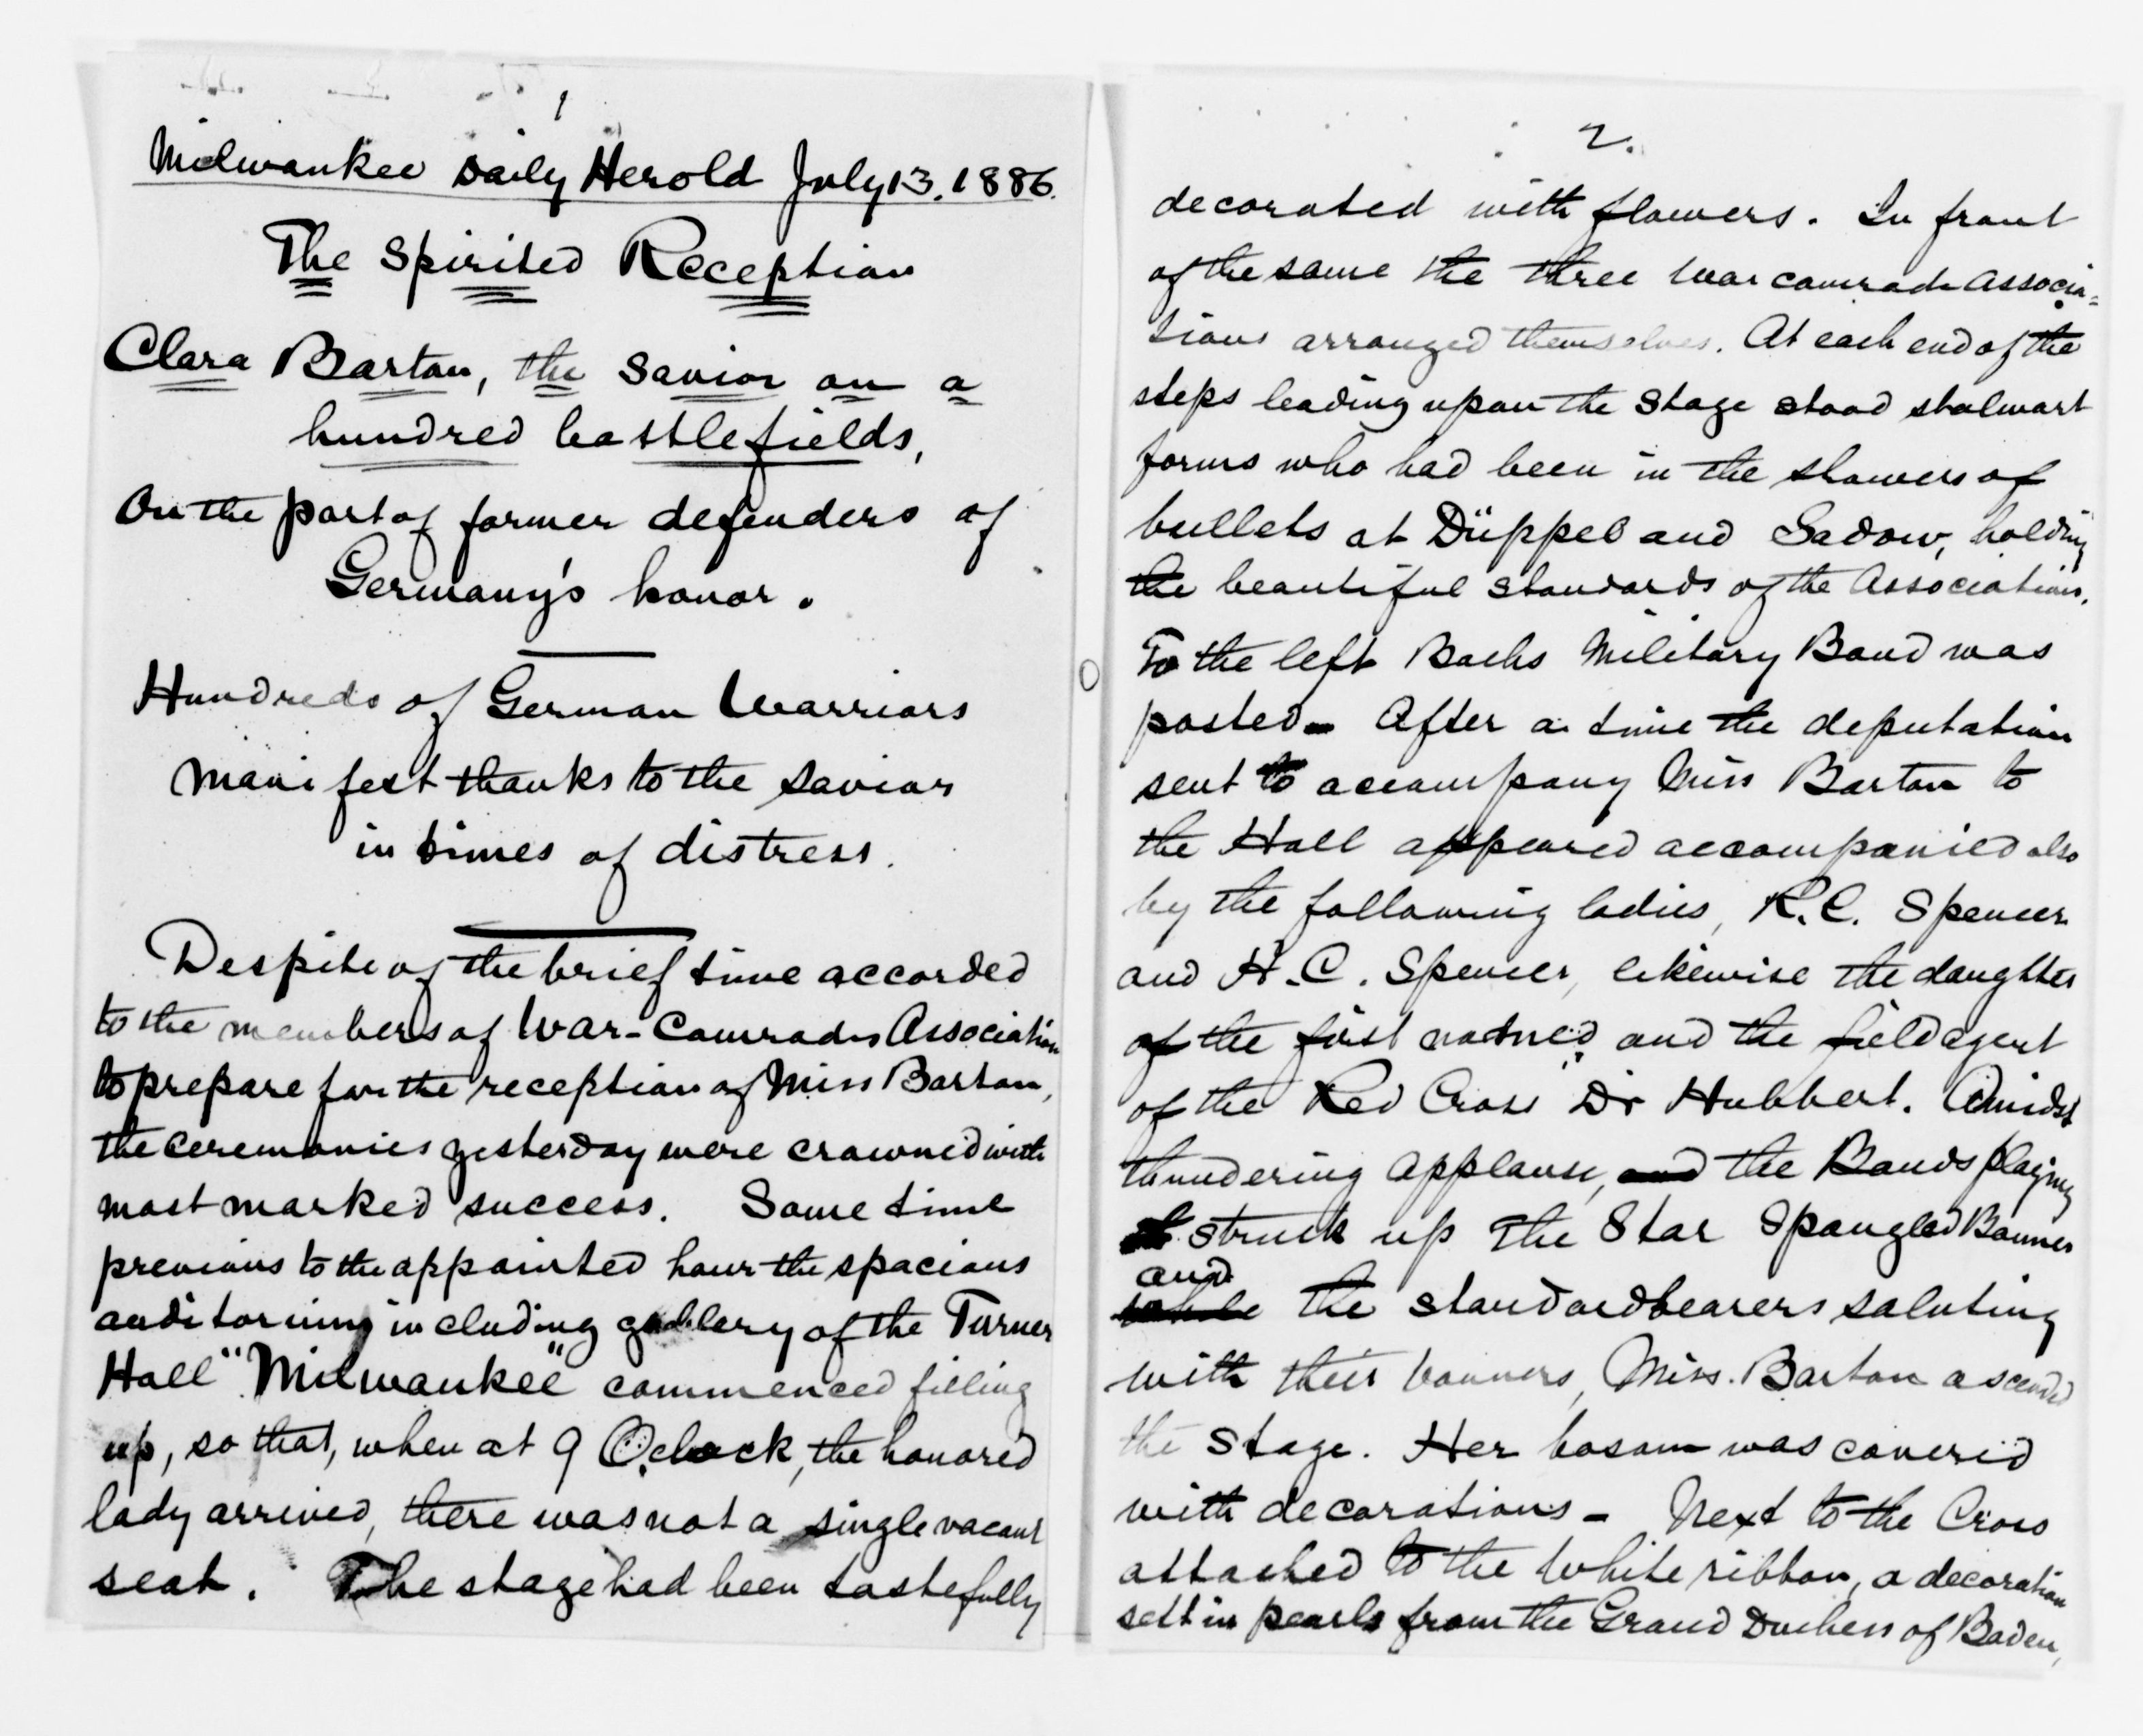 1
Milwaukee Daily Herold July 13. 1886.
The Spirited Reception
Clara Barton, the Savior on a
hundred battlefields,
On the part of former defenders of
Germany's honor.
Hundreds of German Warriors
manifest thanks to the savior
in times of distress.
Despite of the brief time accorded
to the members of War-Comrades Association
to prepare for the reception of Miss Barton,
the ceremonies yesterday were crowned with
most marked success. Some time
previous to the appointed hour the spacious
auditorium including gallery of the Turner
Hall "Milwaukee" commenced filling
up, so that, when at 9 O,clock, the honored
lady arrived, there was not a single vacant
seat. The stage had been tastefully
2.
decorated with flowers. In front
of the same the three War comrade Associa=
tions arranged themselves. At each end of the
steps leading upon the Stage stood stalwart
forms who had been in the showers of
bullets at Düppel and Sadow, holding
the beautiful standards of the Associations.
To the left Bachs Military Band was
posted - After a time the deputation
sent to accompany Miss Barton to
the Hall appeared accompanied also
by the following ladies, R.C. Spencer
and H.C. Spencer, likewise the daughter
of the first named and the field agent
of the Red Cross Dr Hubbert. Amidst
thundering applause, and the Bands playing
struck up The Star Spangled Banner
and
while the standardbearers saluting
with their banners, Miss. Barton ascended
the Stage. Her bosom was covered
with decorations - Next to the Cross
attached to the White ribbon, a decoration
sett in pearls from the Grand Duchess of Baden,